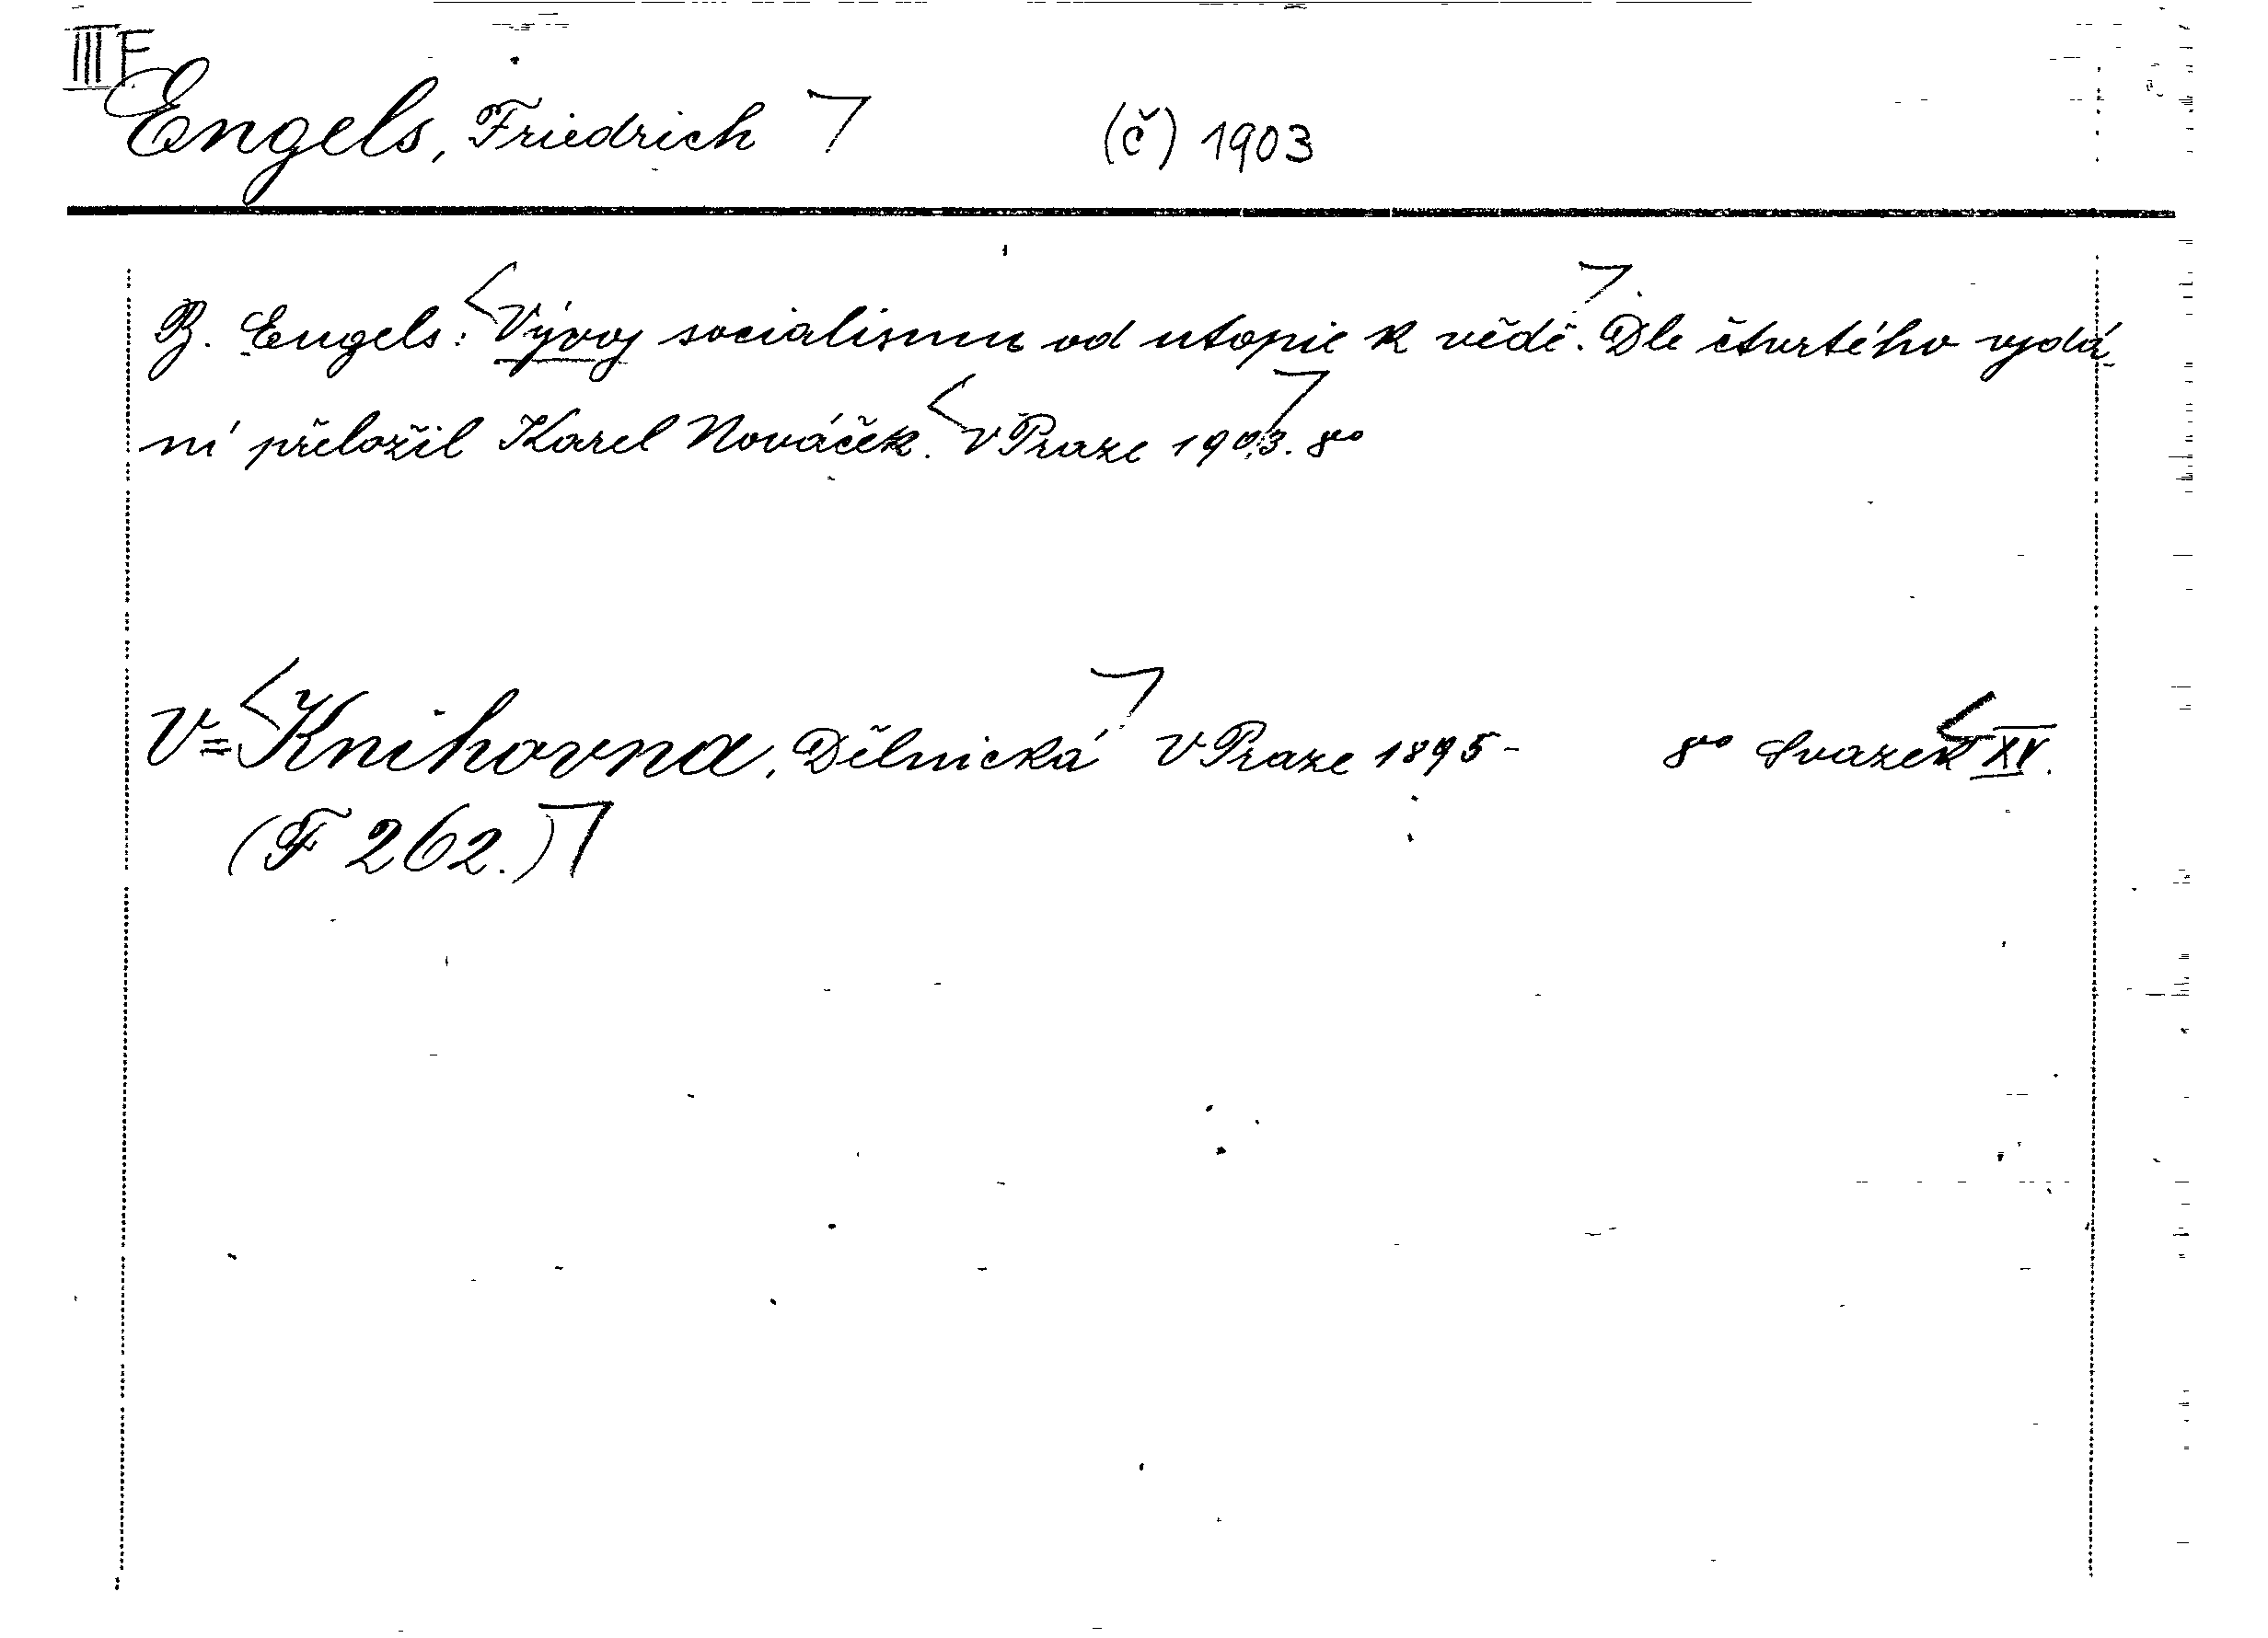 III F
Engels, Friedrich (č) 1903
B. Engels: Vývoj socialismu od utopie k vědě. Dle čtvrtého vydá-
ní přeložil Karel Nováček. V Praze 1903. 8vo
V= Knihovna, Dělnická V Praze 1895- 8vo Svazek XV.
(F 262.)